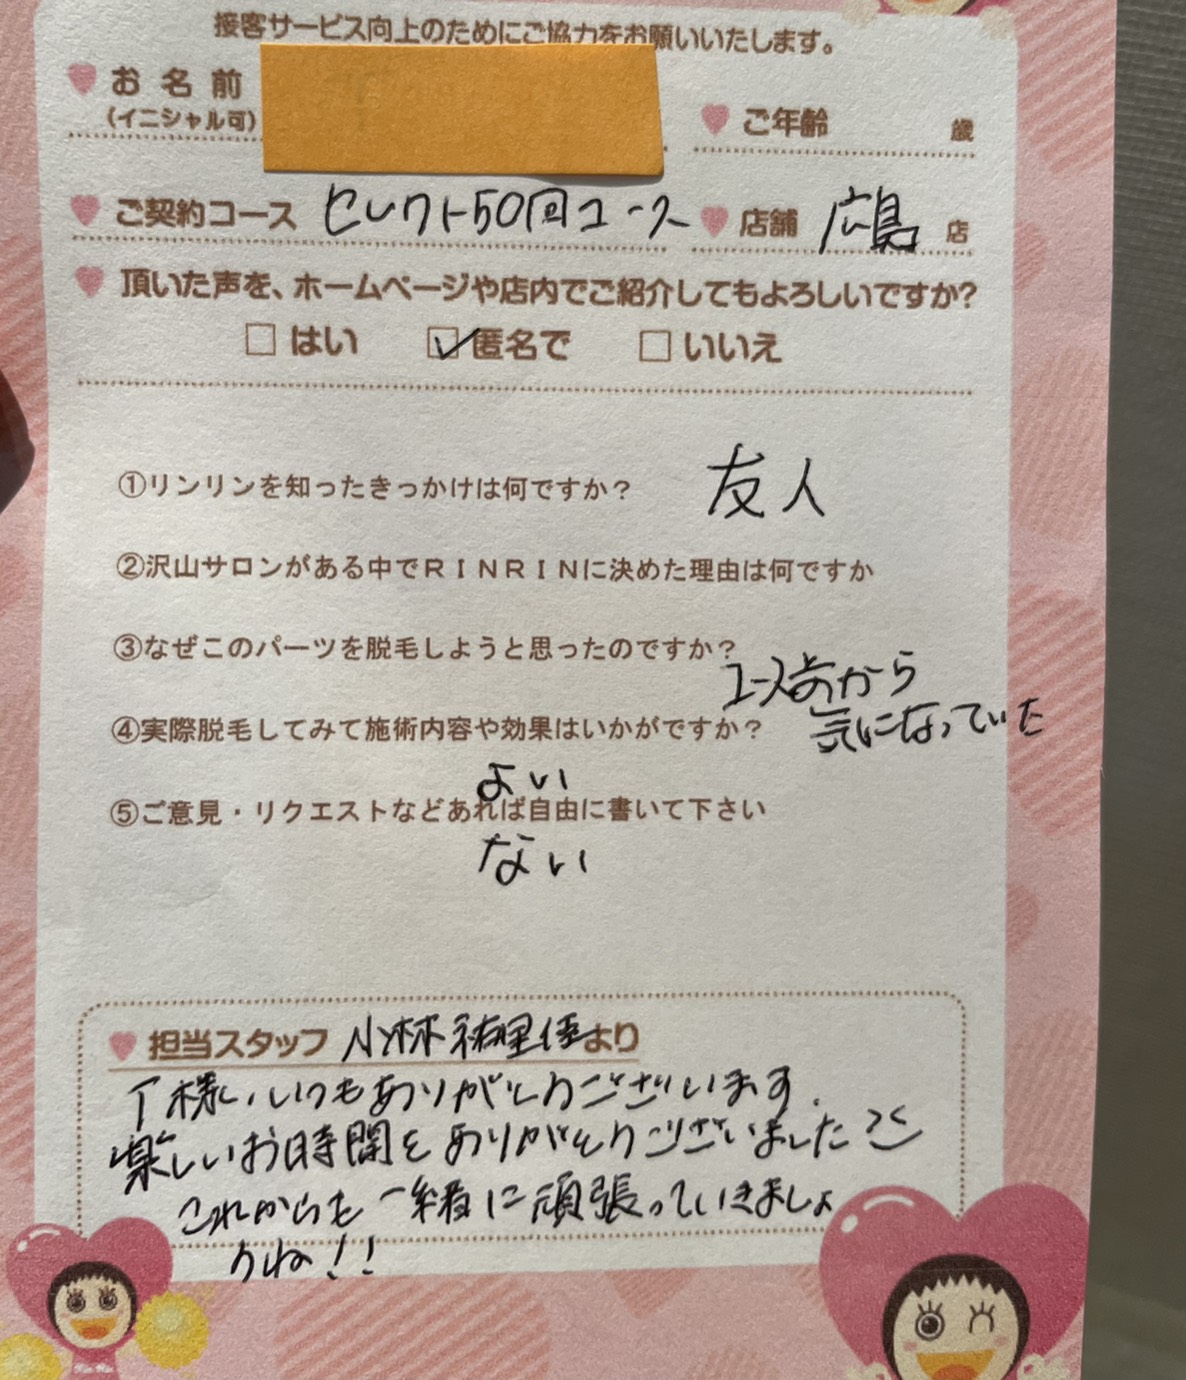 接客サービス向上のためにご協力をお願いいたします。
お名前
(イニシャル可)
ご年齢 歳
ご契約コース セレクト50回コース
店舗 広島 店
頂いた声を、ホームページや店内でご紹介してもよろしいですか?
□ はい ☑ 匿名で □ いいえ
①リンリンを知ったきっかけは何ですか? 友人
②沢山サロンがある中でRINRINに決めた理由は何ですか
③なぜこのパーツを脱毛しようと思ったのですか?
コース前から
気になっていた
④実際脱毛してみて施術内容や効果はいかがですか?
よい
⑤ご意見・リクエストなどあれば自由に書いて下さい
ない
担当スタッフ 小林祐里佳より
T様、いつもありがとうございます。
楽しいお時間をありがとうございました
これからも一緒に頑張っていきましょ
うね!!